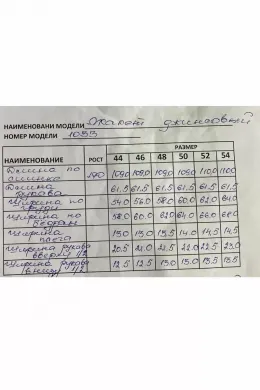 НАИМЕНОВАНИ МОДЕЛИ Жакет джинсовый
НОМЕР МОДЕЛИ 1033
НАИМЕНОВАНИЕ РОСТ РАЗМЕР
44 46 48 50 52 54
Длина по спинке 170 109,0 109,0 109,0 109,0 110,0 110,0
Длина рукава 61.5 61.5 61.5 61.5 61.5 61.5
Ширина по груди 54.0 56.0 58.0 60.0 62.0 64.0
Ширина по бедрам 58.0 60.0 62.0 64.0 66.0 68.0
Ширина плеча 13.0 13.0 13.5 14.0 14.5 14.5
Ширина рукава вверху 1/2 20.5 21.0 21.5 22.0 22.5 23.0
Ширина рукава внизу 1/2 12.5 12.5 13.0 13.0 13.5 13.5